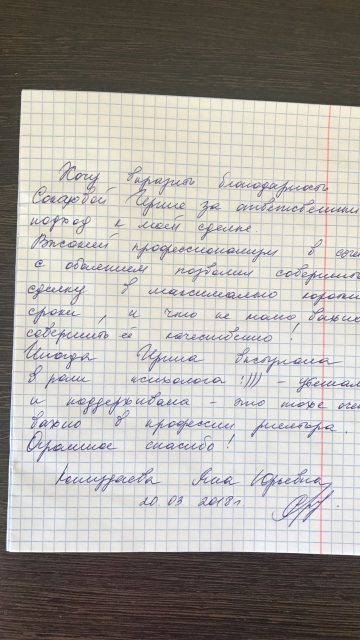 Хочу выразить благодарность
за ответственный
подход к моей сделке.
Высокий профессионализм в соче
с обаянием позволил совершить
сделку в максимально коротк
сроки, и что не мало важно
совершить её качественно!
Иногда Ирина выступала
в роли психолога!)))) - убежда
и поддерживала - это тоже оче
важно в профессии риелтора.
Огромное спасибо!
Яна Юрьевна
20.03 2018 г.